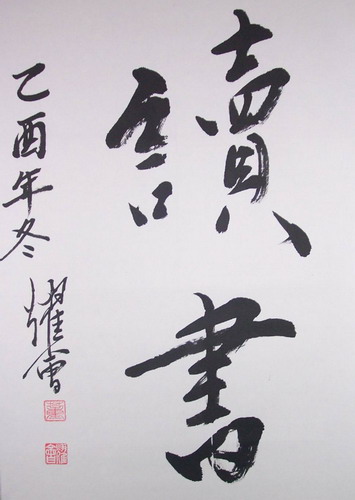 讀書
乙酉年冬
耀會